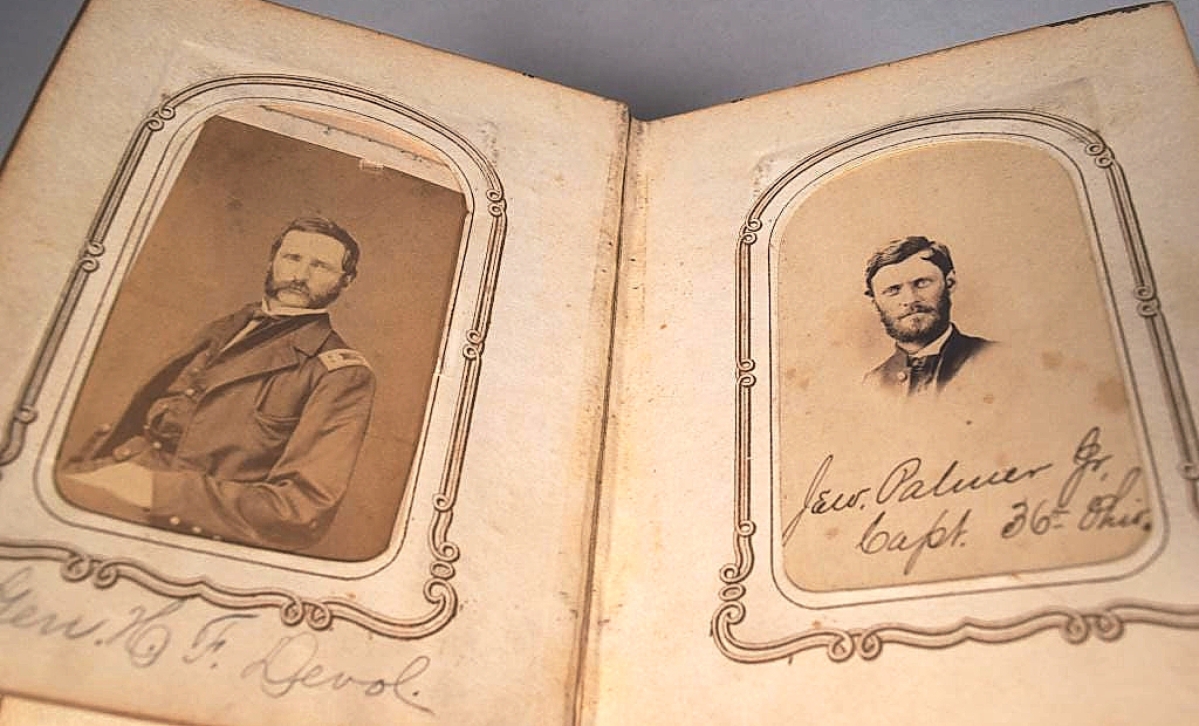 Gen. H. F. Devol.
Jew. Palmer Jr,
Capt. 36th Ohio.